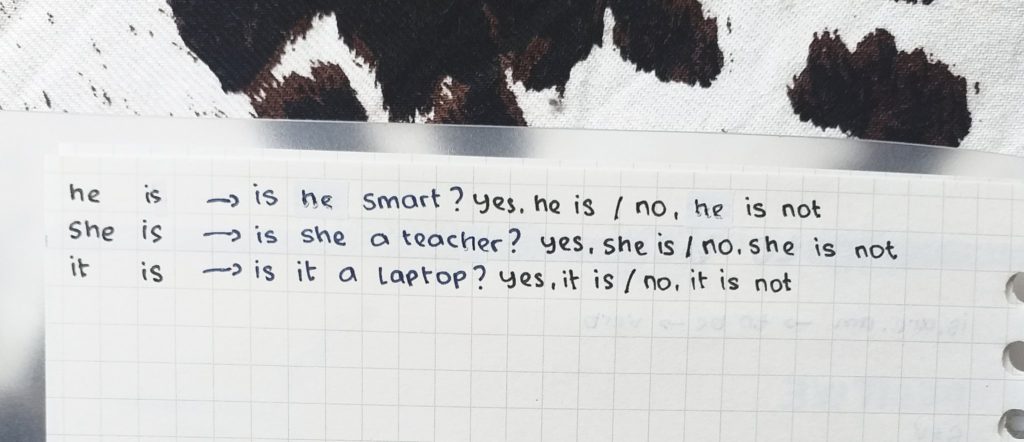 he is → is he smart? yes, he is / no, he is not
she is → is she a teacher? yes, she is / no, she is not
it is → is it a laptop? yes, it is / no, it is not